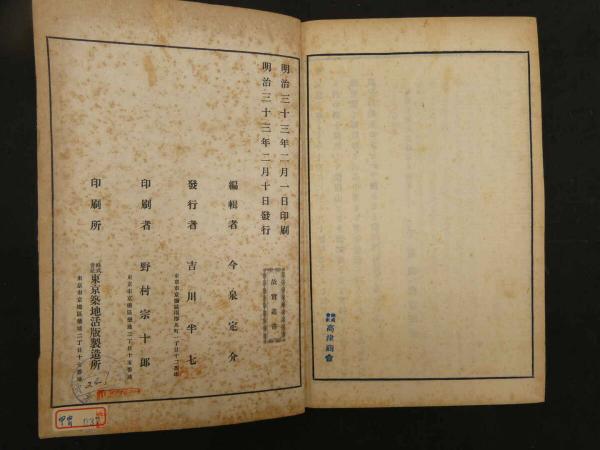 明治三十三年二月一日印刷
明治三十三年二月十日發行
故實叢書
編輯者 今泉定介
發行者 吉川半七
印刷者 野村宗十郎
東京市京橋區築地二丁目十五番地
印刷所 株式會社 東京築地活版製造所
東京市京橋區築地二丁目十五番地
株式會社 高津商會